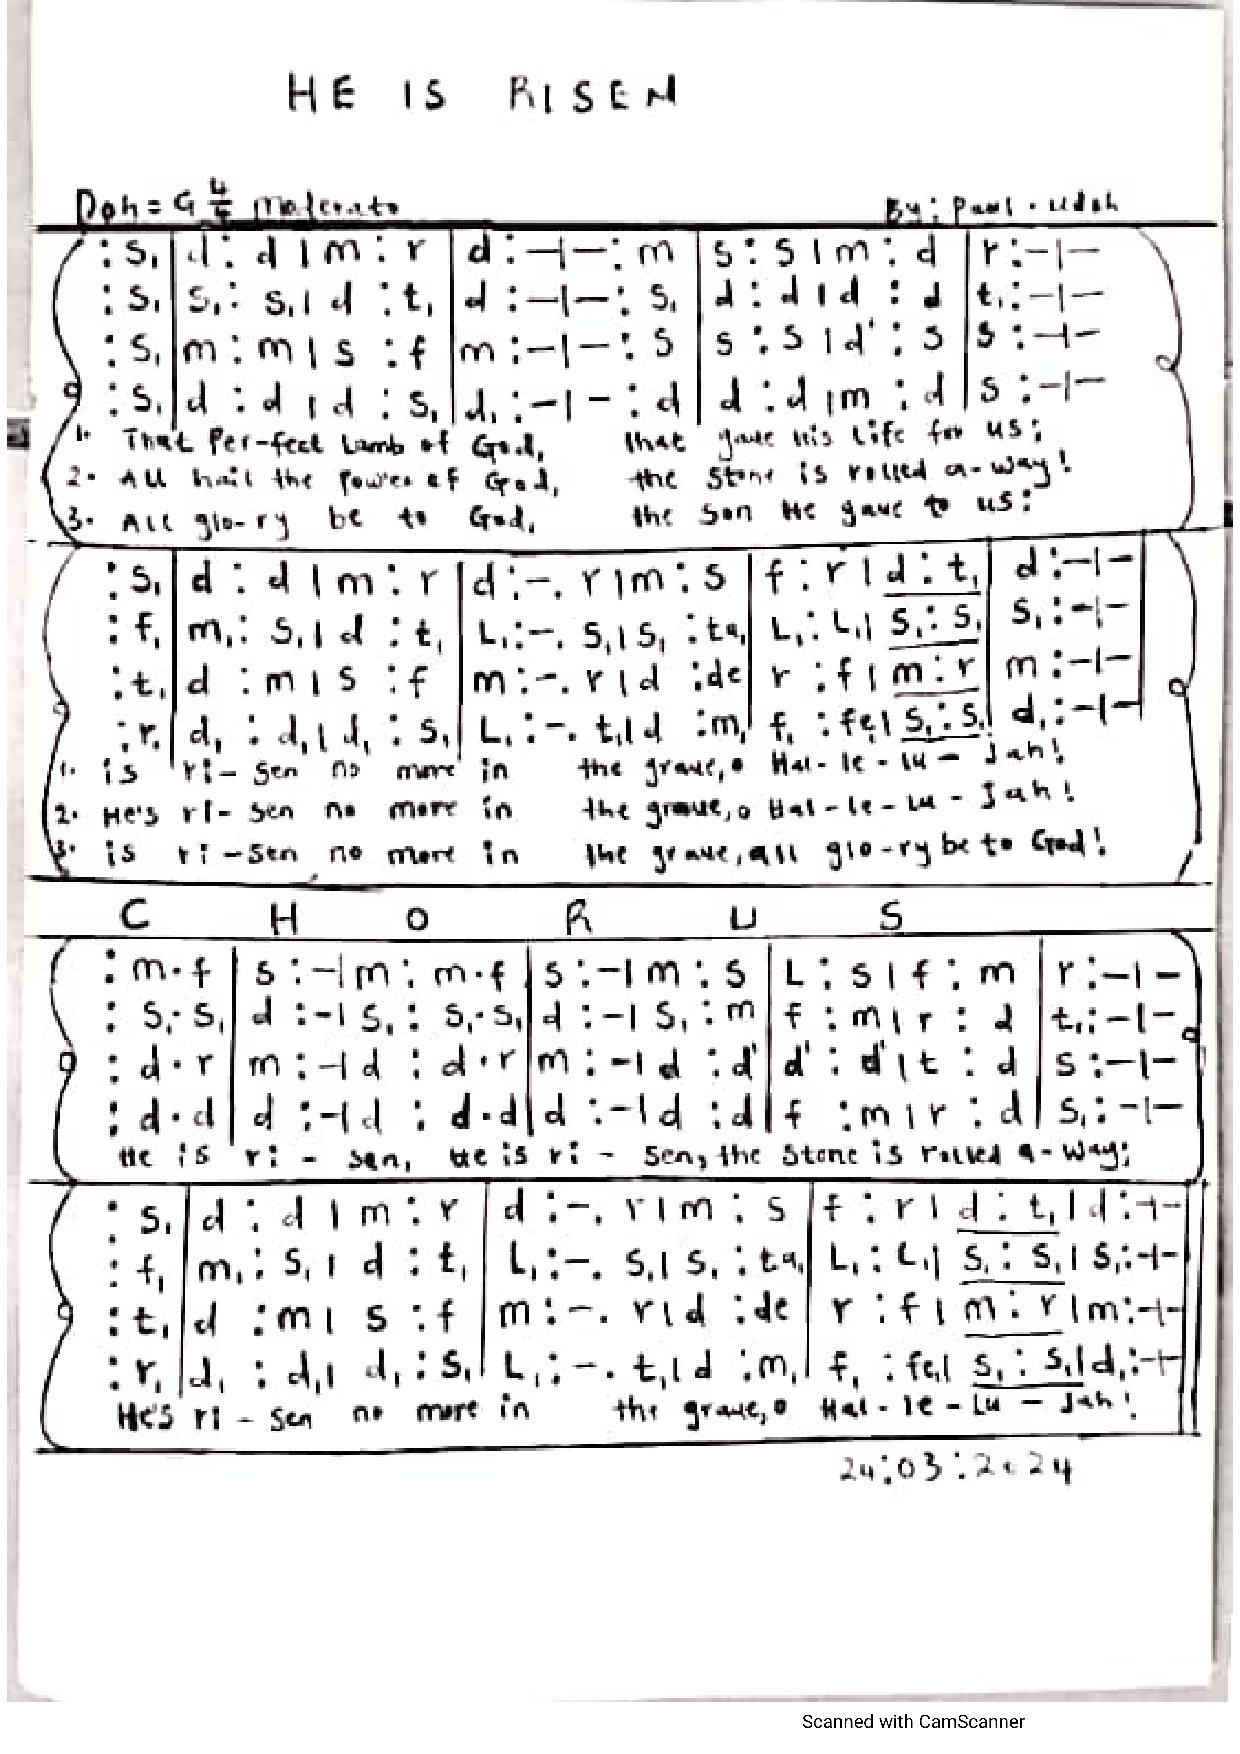 HE IS RISEN
Doh = G 4/4 Moderato By: Paul. Udoh
: s, | d : d | m : r | d : - | - : m | s : s | m : d | r : - | -
: s, | s, : s, | d : t, | d : - | - : s, | d : d | d : d | t, : - | -
: s, | m : m | s : f | m : - | - : s | s : s | d' : s | s : - | -
: s, | d : d | d : s, | d, : - | - : d | d : d | m : d | s : - | -
1. That Per-fect Lamb of God, that gave His Life for us;
2. All hail the Power of God, the Stone is rolled a-way!
3. All glo-ry be to God, the Son He gave to us:
: s, | d : d | m : r | d : -. r | m : s | f : r | d : t, | d : - | -
: f, | m, : s, | d : t, | L, : -. s, | s, : ta, | L, : L, | s, : s, | s, : - | -
: t, | d : m | s : f | m : -. r | d : de | r : f | m : r | m : - | -
: r, | d, : d, | d, : s, | L, : -. t, | d : m, | f, : fe, | s, : s, | d, : - | -
1. is ri-sen no more in the grave, o Hal-le-lu-Jah!
2. He's ri-sen no more in the grave, o Hal-le-lu-Jah!
3. is ri-sen no more in the grave, all glo-ry be to God!
CHORUS
: m . f | s : - | m : m . f | s : - | m : s | L : s | f : m | r : - | -
: s, . s, | d : - | s, : s, . s, | d : - | s, : m | f : m | r : d | t, : - | -
: d . r | m : - | d : d . r | m : - | d : d' | d' : d' | t : d | s : - | -
: d . d | d : - | d : d . d | d : - | d : d | f : m | r : d | s, : - | -
He is ri-sen, He is ri-sen, the Stone is rolled a-way;
: s, | d : d | m : r | d : -. r | m : s | f : r | d : t, | d : - | -
: f, | m, : s, | d : t, | L, : -. s, | s, : ta, | L, : L, | s, : s, | s, : - | -
: t, | d : m | s : f | m : -. r | d : de | r : f | m : r | m : - | -
: r, | d, : d, | d, : s, | L, : -. t, | d : m, | f, : fe, | s, : s, | d, : - | -
He's ri-sen no more in the grave, o Hal-le-Lu-Jah!
24:03:2024
Scanned with CamScanner